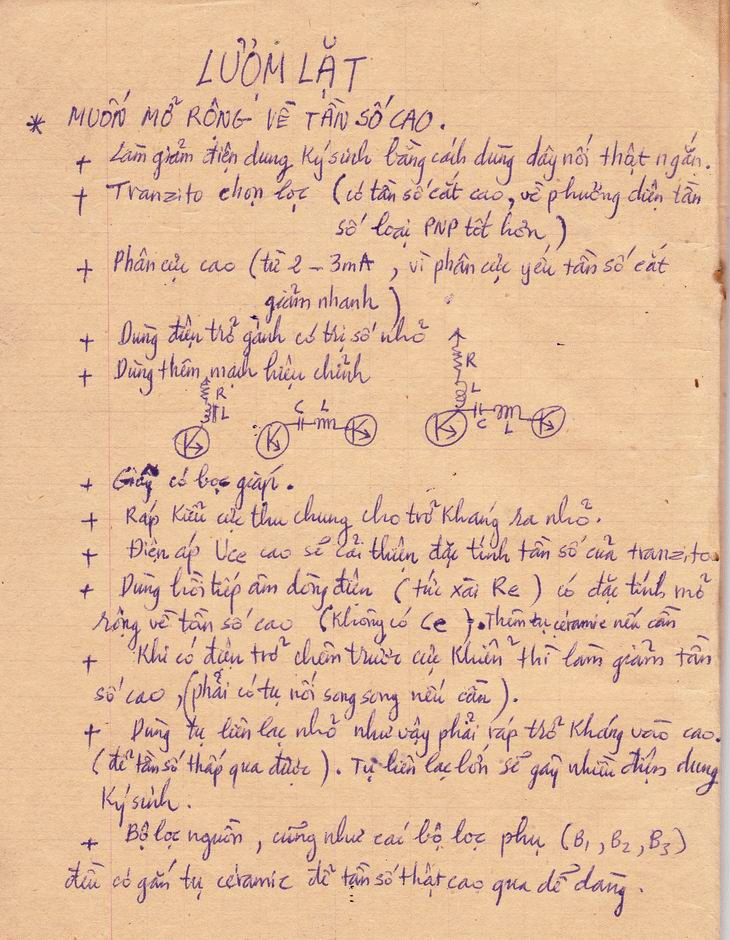 LƯỢM LẶT
* MUỐN MỞ RỘNG VỀ TẦN SỐ CAO.
+ Làm giảm điện dung Ký sinh bằng cách dùng dây nối thật ngắn.
+ Tranzito chọn lọc (có tần số cắt cao, về phương diện tần
số loại PNP tốt hơn)
+ Phân cực cao (từ 2 - 3mA, vì phân cực yếu tần số cắt
giảm nhanh)
+ Dùng điện trở gánh có trị số nhỏ
+ Dùng thêm mạch hiệu chỉnh
R
L
C L
R
L
C L
+ Giây có bọc giáp.
+ Ráp Kiểu cực thu chung cho trở Kháng ra nhỏ.
+ Điện áp Uce cao sẽ cải thiện đặc tính tần số của tranzito
+ Dùng hồi tiếp âm dòng điện (tức xài Re) có đặc tính mở
rộng về tần số cao (Không có Ce). Thêm tụ céramic nếu cần
+ Khi có điện trở chêm trước cực Khiển thì làm giảm tần
số cao, (phải có tụ nối song song nếu cần).
+ Dùng tụ liên lạc nhỏ như vậy phải ráp trở Kháng vào cao.
(để tần số thấp qua được). Tụ liên lạc lớn sẽ gây nhiều điện dung
Ký sinh.
+ Bộ lọc nguồn, cũng như các bộ lọc phụ (B1, B2, B3)
đều có gắn tụ céramic để tần số thật cao qua dễ dàng.